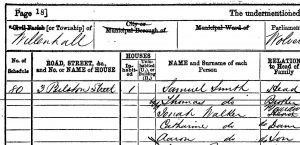 Page 18]
The undermentioned
Civil Parish [or Township] of
City or
Municipal Borough of
Municipal Ward of
Parliamen
Willenhall
Wolver
No. of
Schedule
ROAD, STREET, &c.,
and No. or NAME of HOUSE
HOUSES
Inhabited
Uninhabited
(U.), or
Building
(B.)
NAME and Surname of each
Person
RELATION
to Head of
Family
80
3 Pielston Street
1
Samuel Smith
Head
Thomas do
Brother
Walker
Catherine do
Aaron do
Son